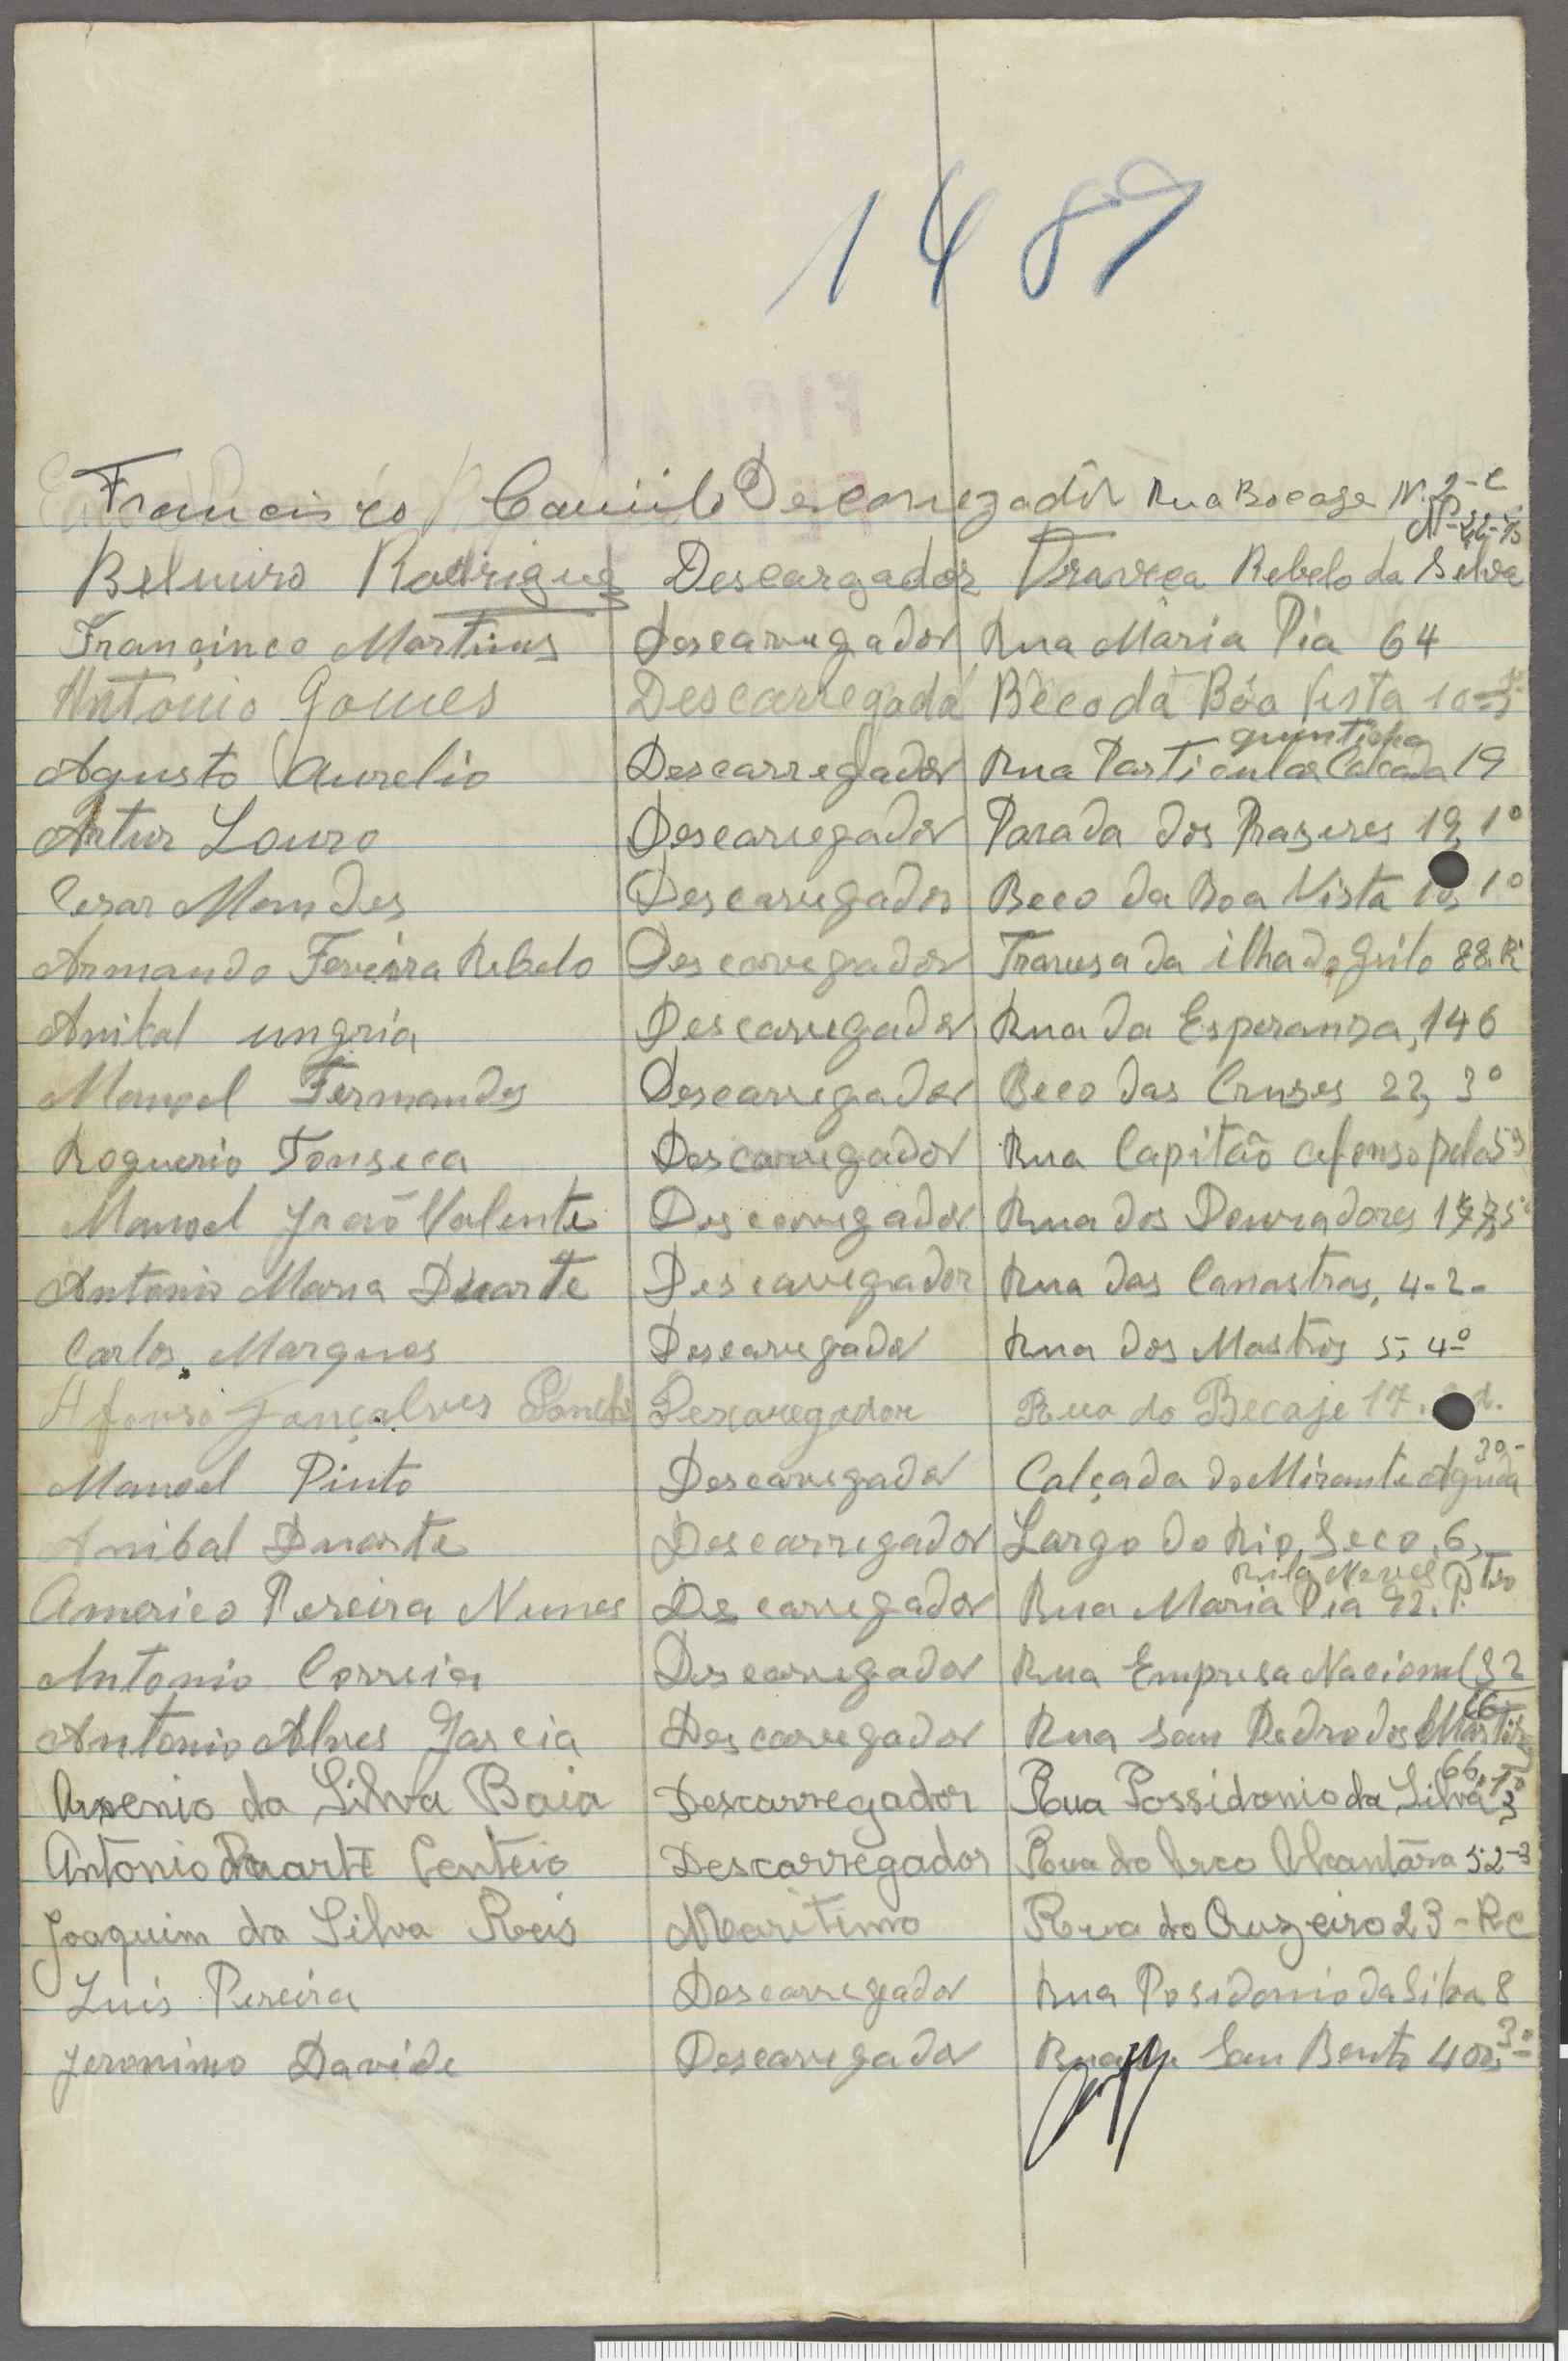 1487
Francisco Camilo Descarregadôr Rua Bocage N. 2-C
Belmiro Rodrigues Descargador Traveça Rebelo da Selva
Françinco Martins Descarregador Rua Mària Pia 64
Antonio Gomes Descarregadó Bêco da Bôa Vista 10-3
Agusto Aurelio Descarregador Rua Particular Calcada quintinha 19
Artur Louro Descarregador Parada dos Prazeres 19, 1º
Cesar Mendes Descarregador Beco da Boa Vista 1º
Armando Fereira Rebelo Descarregador Travesa da ilha do Grilo 88
Anibal ungria Descarregador Rua da Esperanza, 146
Manoel Fernandes Descarregador Beco das Cruzes 22, 3º
Roguerio Fonseca Descarregador Rua Capitão afonso pala 53
Manoel João Valente Descarregador Rua dos Douradores
Antonio Maria Duarte Descarregador Rua das Canastras, 4-2-
Carlos Marques Descarregador Rua dos Mastros 5, 4º
Afonso Gonçalves Descaregador Rua do Becaje 17.
Manoel Pinto Descarregador Calçada do Mirante Ajuda 30-
Anibal Duarte Descarregador Largo do Rio, Seco, 6,
Americo Pereira Nunes Descarregador Rua Maria Pia 92. P.
Antonio Correia Descarregador Rua Empresa Nacional 32
Antonio Alves Garcia Descarregador Rua San Pedro dos Martir 16
Arsenio da Silva Baia Descarregador Rua Possidonio da Silva 66,
Antonio Duarte Centeio Descarregador Rua do Arco Alcantâra 52-3
Joaquim da Silva Reis Maritimo Rua do Cruzeiro 23-Rc
Luis Pereira Descarregador Rua Posidonio da Silva 8
Jeronimo Davide Descarregador Rua San Bento 402, 3º